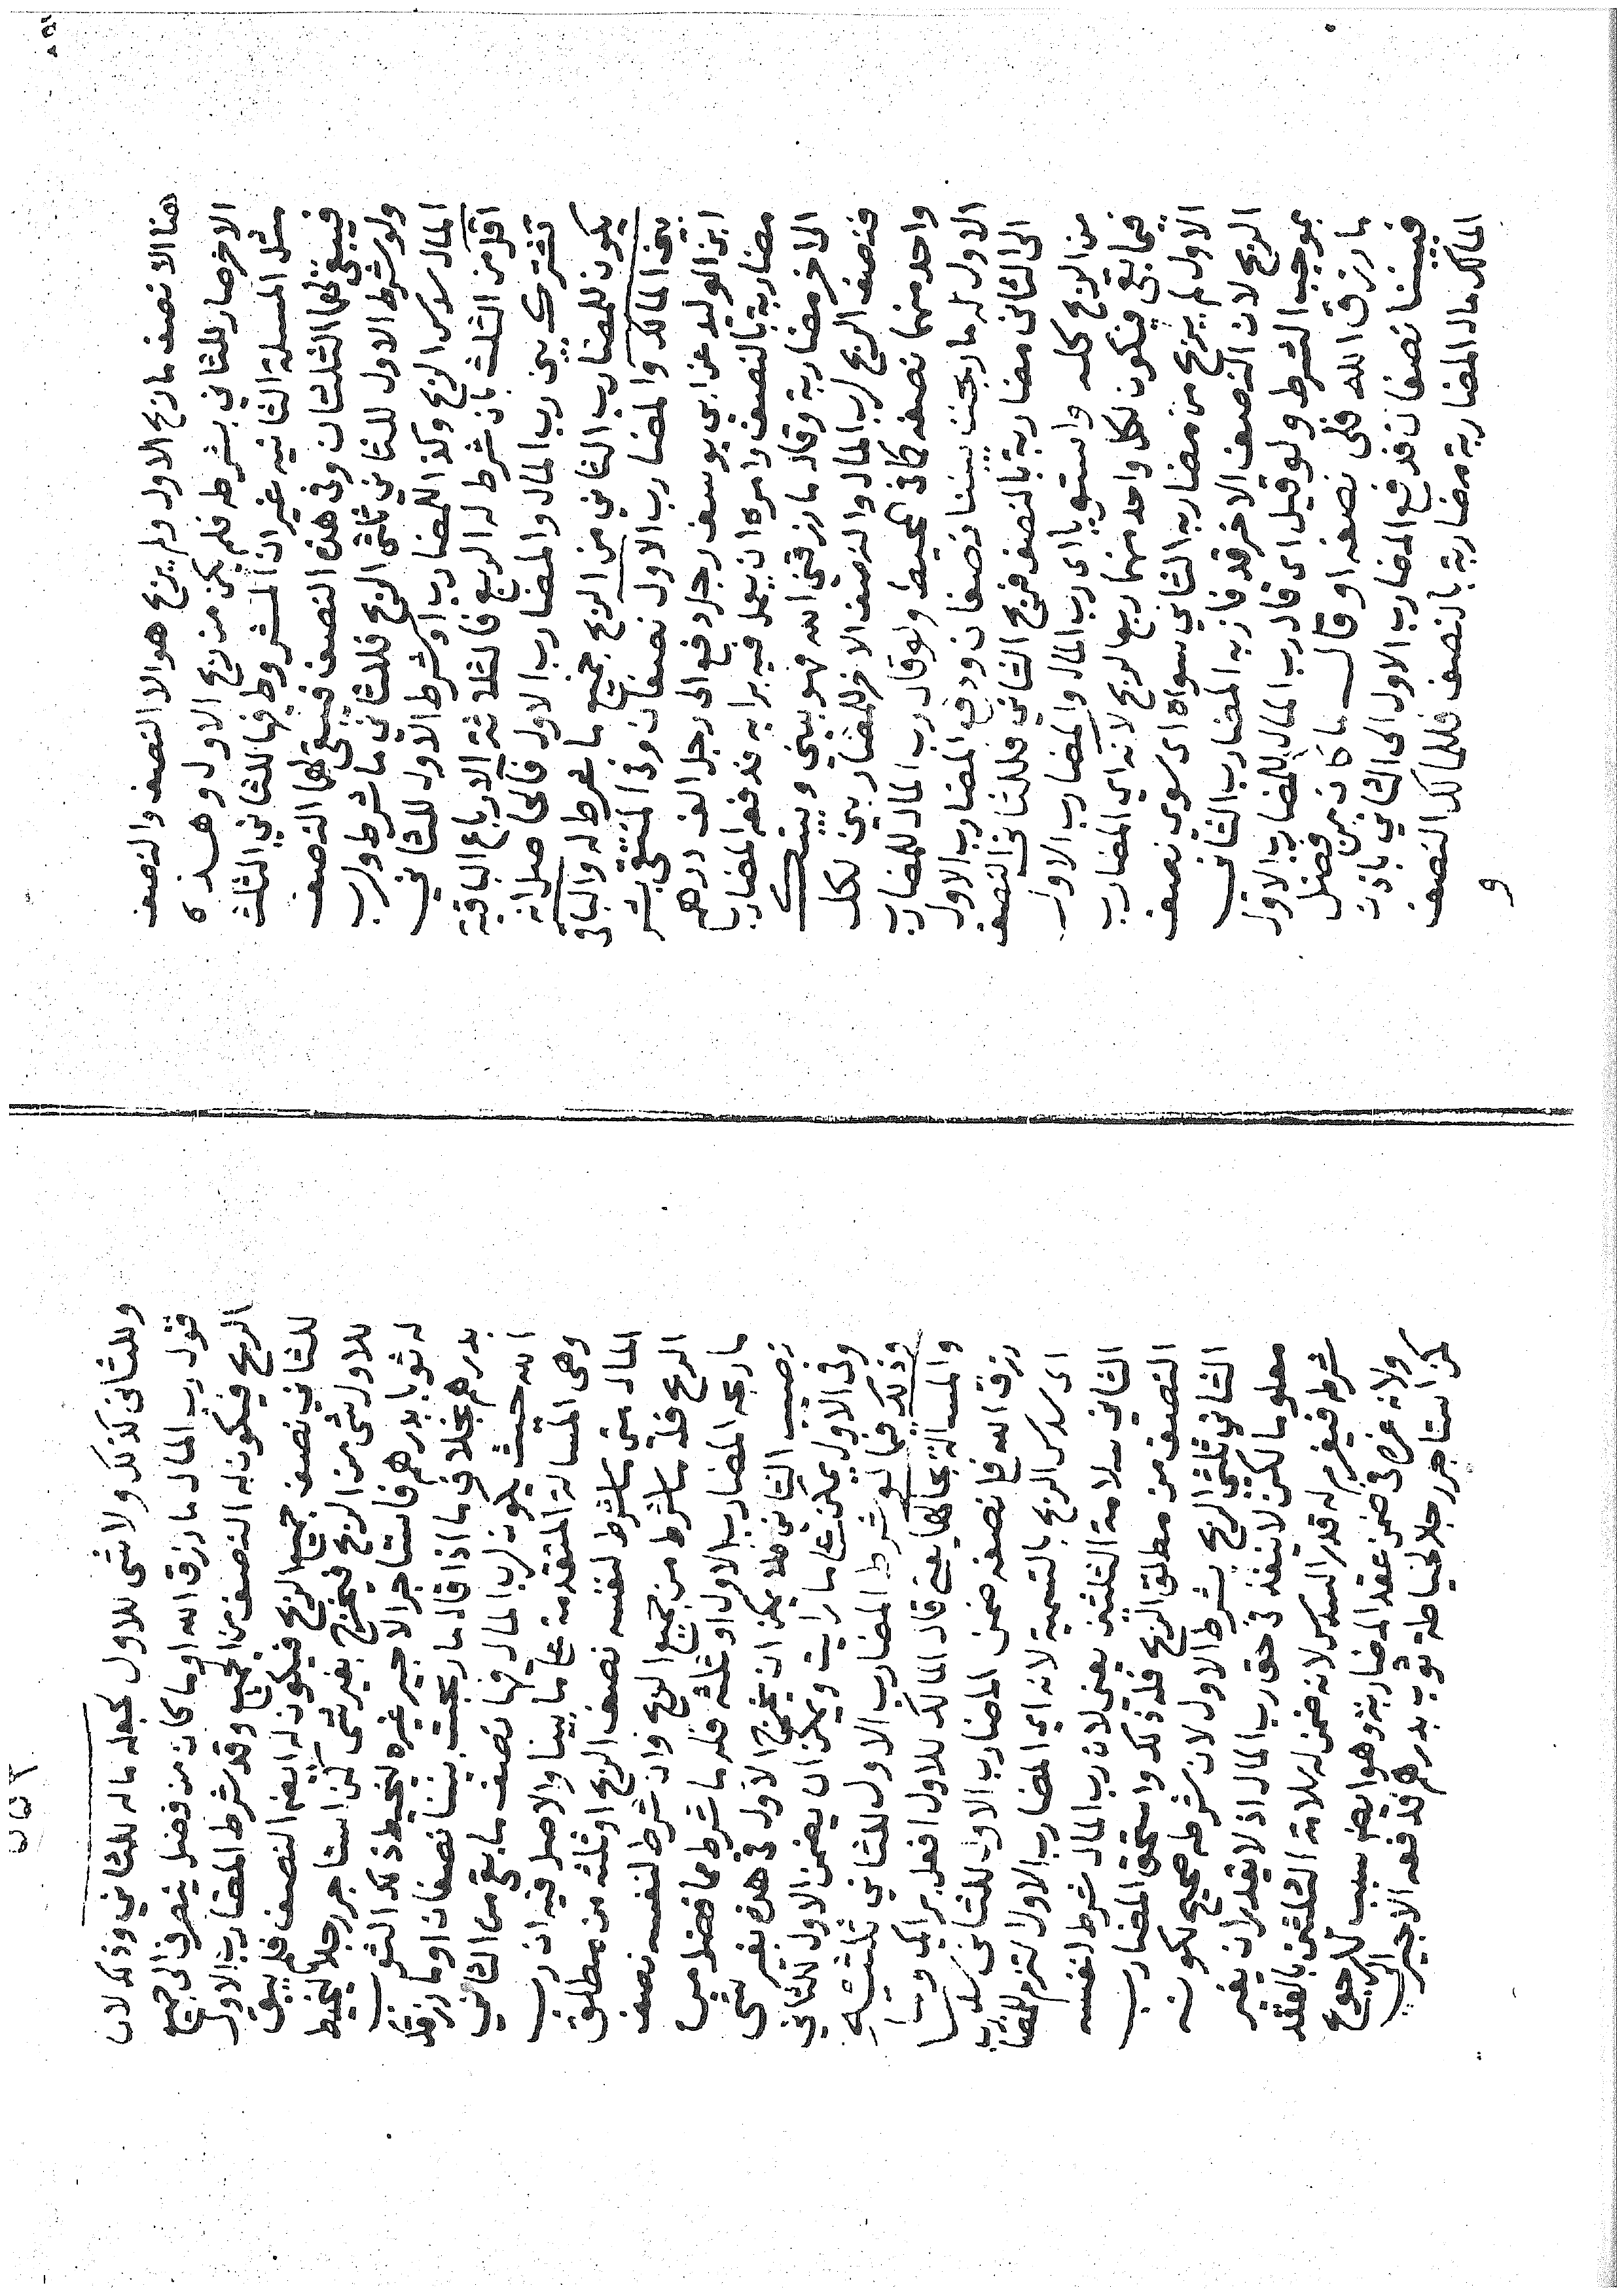 هنا الا نصف ما ربح الاول ولم يربح هو الا النصف والنصف
الاخر صار للثاني بشرطه فلم يكن من ربح الاول وهذه
مثل المسئلة الثانيه غير ان المشروط فيها للثاني الثلث
فيبقى لهما الثلثان وفى هذه النصف فيبقى لهما النصف
ولو شرط الاول للثاني ثلثى الربح فللثاني ما شرط ولرب
المال سدس الربح وكذا للمضارب او شرط الاول للثاني
اقل من الثلث بان شرط له الربع فالثلاثة الارباع الباقية
تشترك بين رب المال والمضارب الاول فالحاصل انه
يكون للمضارب الثاني من الربح جميع ما شرط له والباقى
بين المالك والمضارب الاول نصفان وفى المنتقى بشر
ابن الوليد عن ابي يوسف رجل دفع الى رجل الف درهم
مضاربة بالنصف وامره ان يعمل فيه برايه فدفعه المضارب
الى اخر مضاربة وقال ما رزقنى الله فهو بينى وبينك
فنصف الربح لرب المال والنصف الاخر للمضاربين لكل
واحد منهما نصفه كما فى المحيط ولو قال رب المال للمضارب
الاول له ما ربحت بيننا نصفان ودفع المضارب الاول
الى الثانى مضاربة بالنصف فربح الثاني فللثاني النصف
من الربح كله واستويا اى رب المال والمضارب الاول
فيما بقى فيكون لكل واحد منهما ربع الربح لانه اي المضارب
الاول لم يربح من مضاربه الثاني سواه اى سوى نصف
الربح لان النصف الاخر قد فاز به المضارب الثاني
بموجب الشرط ولو قيل اى قال رب المال للمضارب الاول
ما رزق الله فلى نصفه او قال ما كان من فضل
فبيننا نصفان فدفع المضارب الاول الى الثاني باذن
المالك مال المضاربة مضاربة بالنصف فللمالك النصف
و
وللثانى كذلك ولا شى للاول لجعله ماله للثاني وذلك لان
قول رب المال ما رزق الله او ما كان من فضل ينصرف الى جميع
الربح فيكون له النصف من الجميع وقد شرط المضارب الاول
للثاني نصف جميع الربح فيكون له ايضا النصف فلم يبق
للاول شى من الربح فيخرج بغير شى كمن استاجر رجلا ليخيط
له ثوبا بدرهم فاستاجر الاجير غيره ليخيط ذلك الثوب
بدرهم بخلاف ما اذا قال ما ربحت بيننا نصفان او ما رزقك
الله حيث يكون لرب المال فيها نصف ما بقى من الثاني
وهى المسالة المتقدمة على ما بينا والاصل فيه ان رب
المال متى ما شرط لنفسه نصف الربح او ثلثه من مطلق
الربح فله ما شرط من جميع الربح وان شرط لنفسه نصف
ما ربحه المضارب الاول او ثلثه فله ما شرط مما فضل من
نصيب الثاني فلا يمكن ان يخرج الاول فى هذه بغير شى
وفى الاول يمكن على ما رايت ويمكن ان يضمن الاول للثاني
وذلك فيما لو شرط المضارب الاول للثاني ثلثيه
والمسالة بحالها يعنى قال المالك للاول اعمل برايك وما
رزق الله فلى نصفه ضمن المضارب الاول للثاني سدسا
اى سدس الربح بالتسمية لانه اي المضارب الاول التزم للمضارب
الثاني سلامة الثلثين يعني لان رب المال شرط لنفسه
النصف من مطلق الربح فله ذلك واستحق المضارب
الثاني ثلثي الربح بشرط الاول لان شرطه صحيح لكونه
معلوما لكن لا ينفذ فى حق رب المال اذ لا يقدر ان يغير
شرطه فيغرم له قدر السدس لانه ضمن له سلامة الثلثين بالعقد
ولانه غره فى ضمن عقد المضاربة وهو ايضا سبب للرجوع
كمن استاجر رجلا لخياطة ثوب بدرهم فدفعه الاجير الى